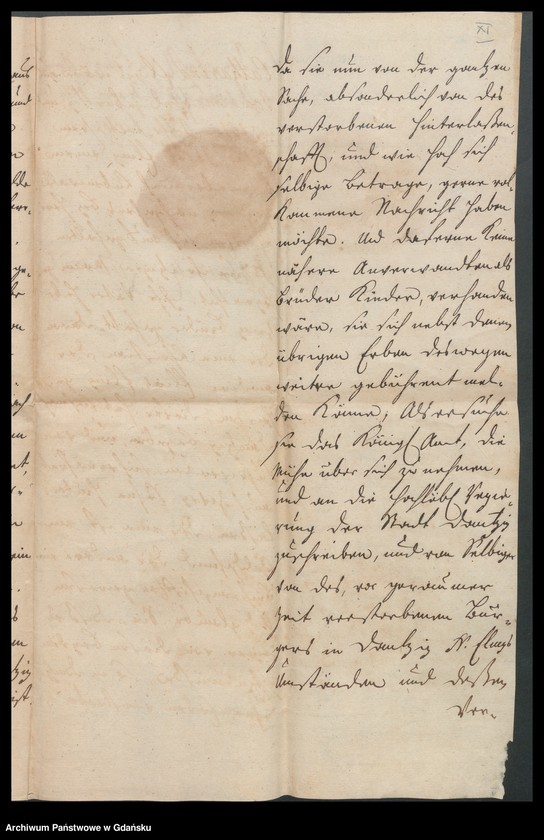 XI
da sie nun von der gantzen
Sache, absonderlich von des
verstorbenen Hinterlaßen,
schafft, und wie hoch sich
selbige betrage, gerne vol-
kommene Nachricht haben
möchte. Und daferne keine
nähere Anverwandten als
Brüder Kinder, verhanden
wäre, sie sich nebst denen
übrigen Erben deswegen
weiter gebührent mel-
den könne; Als ersuche
sie das Königl Amt, die
Mühe über sich zu nehmen,
und an die Hochlöbl Regie-
rung der Stadt Dantzig
zuschreiben, und von Selbiger
von des, vor geraumer
Zeit verstorbenen Bür-
gers in Dantzig
Umständen und deßen
Ver-
Archiwum Państwowe w Gdańsku